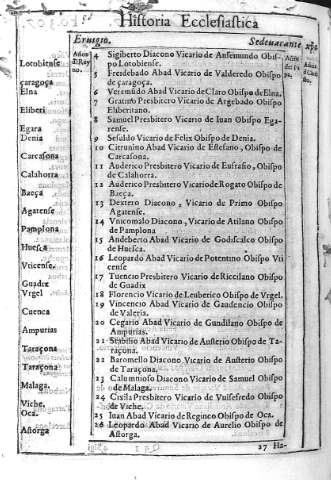 Historia Ecclesiastica
Eruigio. Sedeuacante
Lotobiense
çaragoça
Elna
Eliberi
Egara
Denia
Carcasona
Calahorra
Baeça
Agatense
Pamplona
Huesca
Vticense.
Guadix
Vrgel
Cuenca
Ampurias
Taraçona
Taraçona
Malaga.
Viche.
Oca.
Astorga
4 Sigiberto Diacono Vicario de Ansemundo Obis-
po Lotobiense.
5 Freidebado Abad Vicario de Valderedo Obispo
de çaragoça.
6 Veremudo Abad Vicario de Claro Obispo de Elna.
7 Gratino Presbitero Vicario de Argebado Obispo
Eliberitano.
8 Samuel Presbitero Vicario de Iuan Obispo Ega-
rense.
9 Sesuldo Vicario de Felix Obispo de Denia.
10 Citrunino Abad Vicario de Estefano, Obispo de
Carcasona.
11 Auderico Presbitero Vicario de Eufrasio, Obispo
de Calahorra.
12 Auderico Presbitero Vicario de Rogato Obispo de
Baeça.
13 Dextero Diacono, Vicario de Primo Obispo
Agatense.
14 Vnicomalo Diacono, Vicario de Atilano Obispo
de Pamplona
15 Audeberto Abad Vicario de Godiscalco Obispo
de Huesca.
16 Leopardo Abad Vicario de Potentino Obispo Vti
cense
17 Tuencio Presbitero Vicario de Riccilano Obispo
de Guadix
18 Florencio Vicario de Leuberico Obispo de Vrgel.
19 Vincencio Abad Vicario de Gaudencio Obispo
de Valeria.
20 Cegario Abad Vicario de Gundilano Obispo de
Ampurias.
21 Stabilio Abad Vicario de Austerio Obispo de Ta-
raçona.
22 Baromello Diacono Vicario de Austerio Obispo
de Taraçona.
23 Calumnioso Diacono Vicario de Samuel Obispo
de Malaga.
24 Cixila Presbitero Vicario de Vuisefredo Obispo
de Viche.
25 Iuan Abad Vicario de Regineo Obispo de Oca.
26 Leopardo Abad Vicario de Aurelio Obispo de
Astorga.
27 Ha-